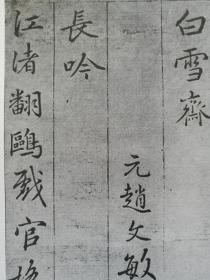 白雪齋
元趙文敏
長吟
江渚翻鷗戲官